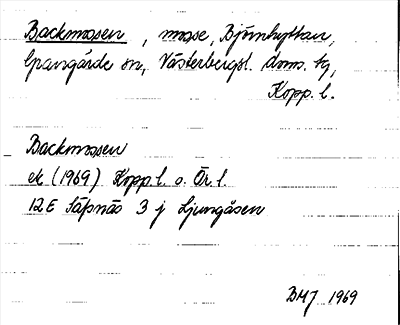 Backmosen, mose, Björnhyttan,
Grangärde sn, Västerbergsl. doms. tg,
Kopp. l.
Backmosen
ek (1969) Kopp. l. o. Ör. l.
12E Säfsnäs 3 j Ljungåsen
BHJ 1969